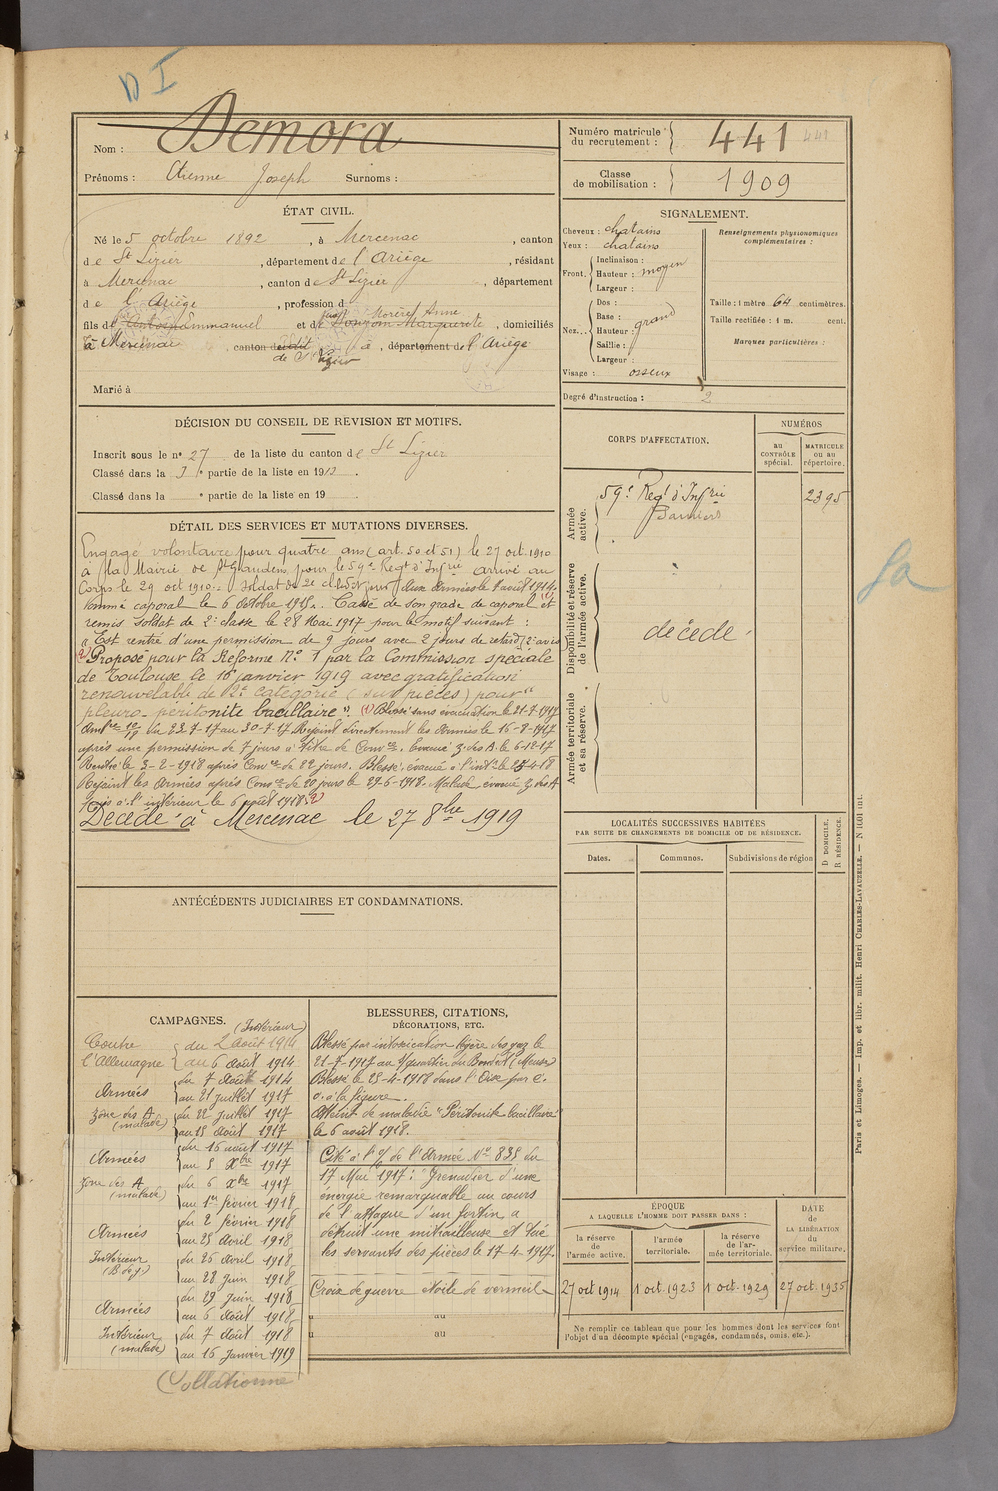 D I
Nom : Demora
Prénoms : Etienne Joseph Surnoms :
Numéro matricule du recrutement : 441 441
Classe de mobilisation : 1909
ÉTAT CIVIL.
Né le 5 octobre 1892, à Mercenac, canton
de St Lizier, département de l'Ariège, résidant
à Mercenac, canton de St Lizier, département
de l'Ariège, profession d
fils d Antoine Emmanuel et de Morère Anne Marguerite, domiciliés
à Mercenac, canton dudit de St Lizier à, département de l'Ariège
Marié à
SIGNALEMENT.
Cheveux : chatains
Yeux : chatains
Front. Inclinaison :
Hauteur : moyen
Largeur :
Nez... Dos :
Base :
Hauteur : grand
Saillie :
Largeur :
Visage : osseux
Renseignements physionomiques complémentaires :
Taille : 1 mètre 64 centimètres.
Taille rectifiée : 1 m. cent.
Marques particulières :
Degré d'instruction : 2
DÉCISION DU CONSEIL DE REVISION ET MOTIFS.
Inscrit sous le n° 27 de la liste du canton de St Lizier
Classé dans la 3e partie de la liste en 1913.
Classé dans la e partie de la liste en 19 .
DÉTAIL DES SERVICES ET MUTATIONS DIVERSES.
Engagé volontaire pour quatre ans (art. 50 et 51) le 27 oct. 1910
à la Mairie de St Gaudens pour le 59e Regt d'Infrie arrivé au
Corps le 29 oct 1910. Soldat de 2e cl. le dit jour. Aux Armées le 7 août 1914.
Nommé caporal le 6 octobre 1915. Cassé de son grade de caporal et
remis soldat de 2e classe le 28 Mai 1917 pour le motif suivant :
"Est rentré d'une permission de 9 jours avec 2 jours de retard (2e avis)
(2) Proposé pour la Réforme N° 1 par la Commission spéciale
de Toulouse le 16 janvier 1919 avec gratification
renouvelable de 2e catégorie (sur pièces) pour "
pleuro-péritonite bacillaire". (1) Blessé sans évacuation le 21-7-1917
Ambce 12/18 du 23-7-17 au 30-7-17 Rejoint directement les Armées le 16-8-1917
après une permission de 7 jours à titre de Convce. Evacué z. des A. le 6-12-17
Rentré le 3-2-1918 après Convce de 22 jours. Blessé, évacué à l'intr le 25-4-18
Rejoint les Armées après Convce de 20 jours le 29-6-1918. Malade évacué z. des A
puis à l'intérieur le 6 août 1918. (2)
Décédé à Mercenac le 27 8bre 1919
CORPS D'AFFECTATION.
NUMÉROS
au CONTRÔLE spécial.
MATRICULE ou au répertoire.
Armée active.
59e Regt d'Infrie 2395
Pamiers
Disponibilité et réserve de l'armée active.
décédé
Armée territoriale et sa réserve.
LOCALITÉS SUCCESSIVES HABITÉES
PAR SUITE DE CHANGEMENTS DE DOMICILE OU DE RÉSIDENCE.
Dates. Communes. Subdivisions de région
D DOMICILE.
R RÉSIDENCE.
ANTÉCÉDENTS JUDICIAIRES ET CONDAMNATIONS.
CAMPAGNES.
(Intérieur)
Contre du 2 Août 1914
l'Allemagne au 6 Août 1914
Armées du 7 Août 1914
au 21 juillet 1917
Zone des A (malade) du 22 juillet 1917
au 15 Août 1917
Armées du 16 août 1917
au 5 Xbre 1917
Zone des A (malade) du 6 Xbre 1917
au 1er février 1918
Armées du 2 février 1918
au 25 Avril 1918
Intérieur (B. de g.) du 26 Avril 1918
au 28 juin 1918
Armées du 29 juin 1918
au 6 Août 1918
Intérieur (malade) du 7 Août 1918
au 16 janvier 1919
Collationné
BLESSURES, CITATIONS, DÉCORATIONS, ETC.
Blessé par intoxication légère des gaz le
21-7-1917 au quartier du (Meuse)
Blessé le 25-4-1918 dans l'Oise par é.
o. à la figure.
Atteint de maladie "Péritonite bacillaire"
le 6 août 1918.
Cité à l'o/ de l'Armée N° 835 du
17 Mai 1917 : "Grenadier d'une
énergie remarquable au cours
de l'attaque d'un fortin, a
détruit une mitrailleuse et tué
les servants des pièces le 17-4-1917.
Croix de guerre étoile de vermeil
au
au
ÉPOQUE
A LAQUELLE L'HOMME DOIT PASSER DANS :
la réserve de l'armée active.
l'armée territoriale.
la réserve de l'armée territoriale.
DATE de LA LIBÉRATION du service militaire.
27 oct 1914 1 oct. 1923 1 oct. 1929 27 oct. 1935
Ne remplir ce tableau que pour les hommes dont les services font
l'objet d'un décompte spécial (engagés, condamnés, omis, etc.).
Paris et Limoges. — Imp. et libr. milit. Henri CHARLES-LAVAUZELLE.